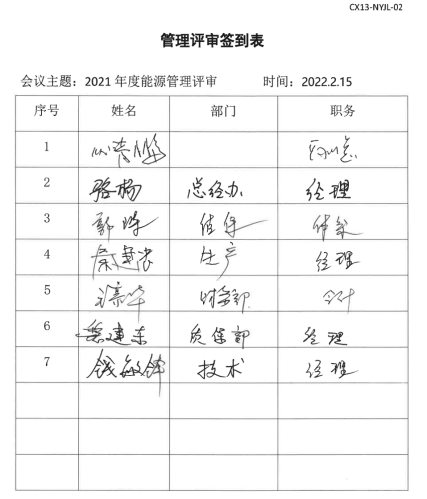 CX13-NYJL-02
管理评审签到表
会议主题：2021 年度能源管理评审 时间：2022.2.15
序号 姓名 部门 职务
1
2 骆杨 总经办 经理
3 郭
4 生产 经理
5 财务部 会计
6 建东 质保部 经理
7 钱敏锋 技术 经理